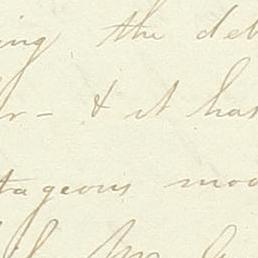 ing the deb
r - & it has
tageous mod